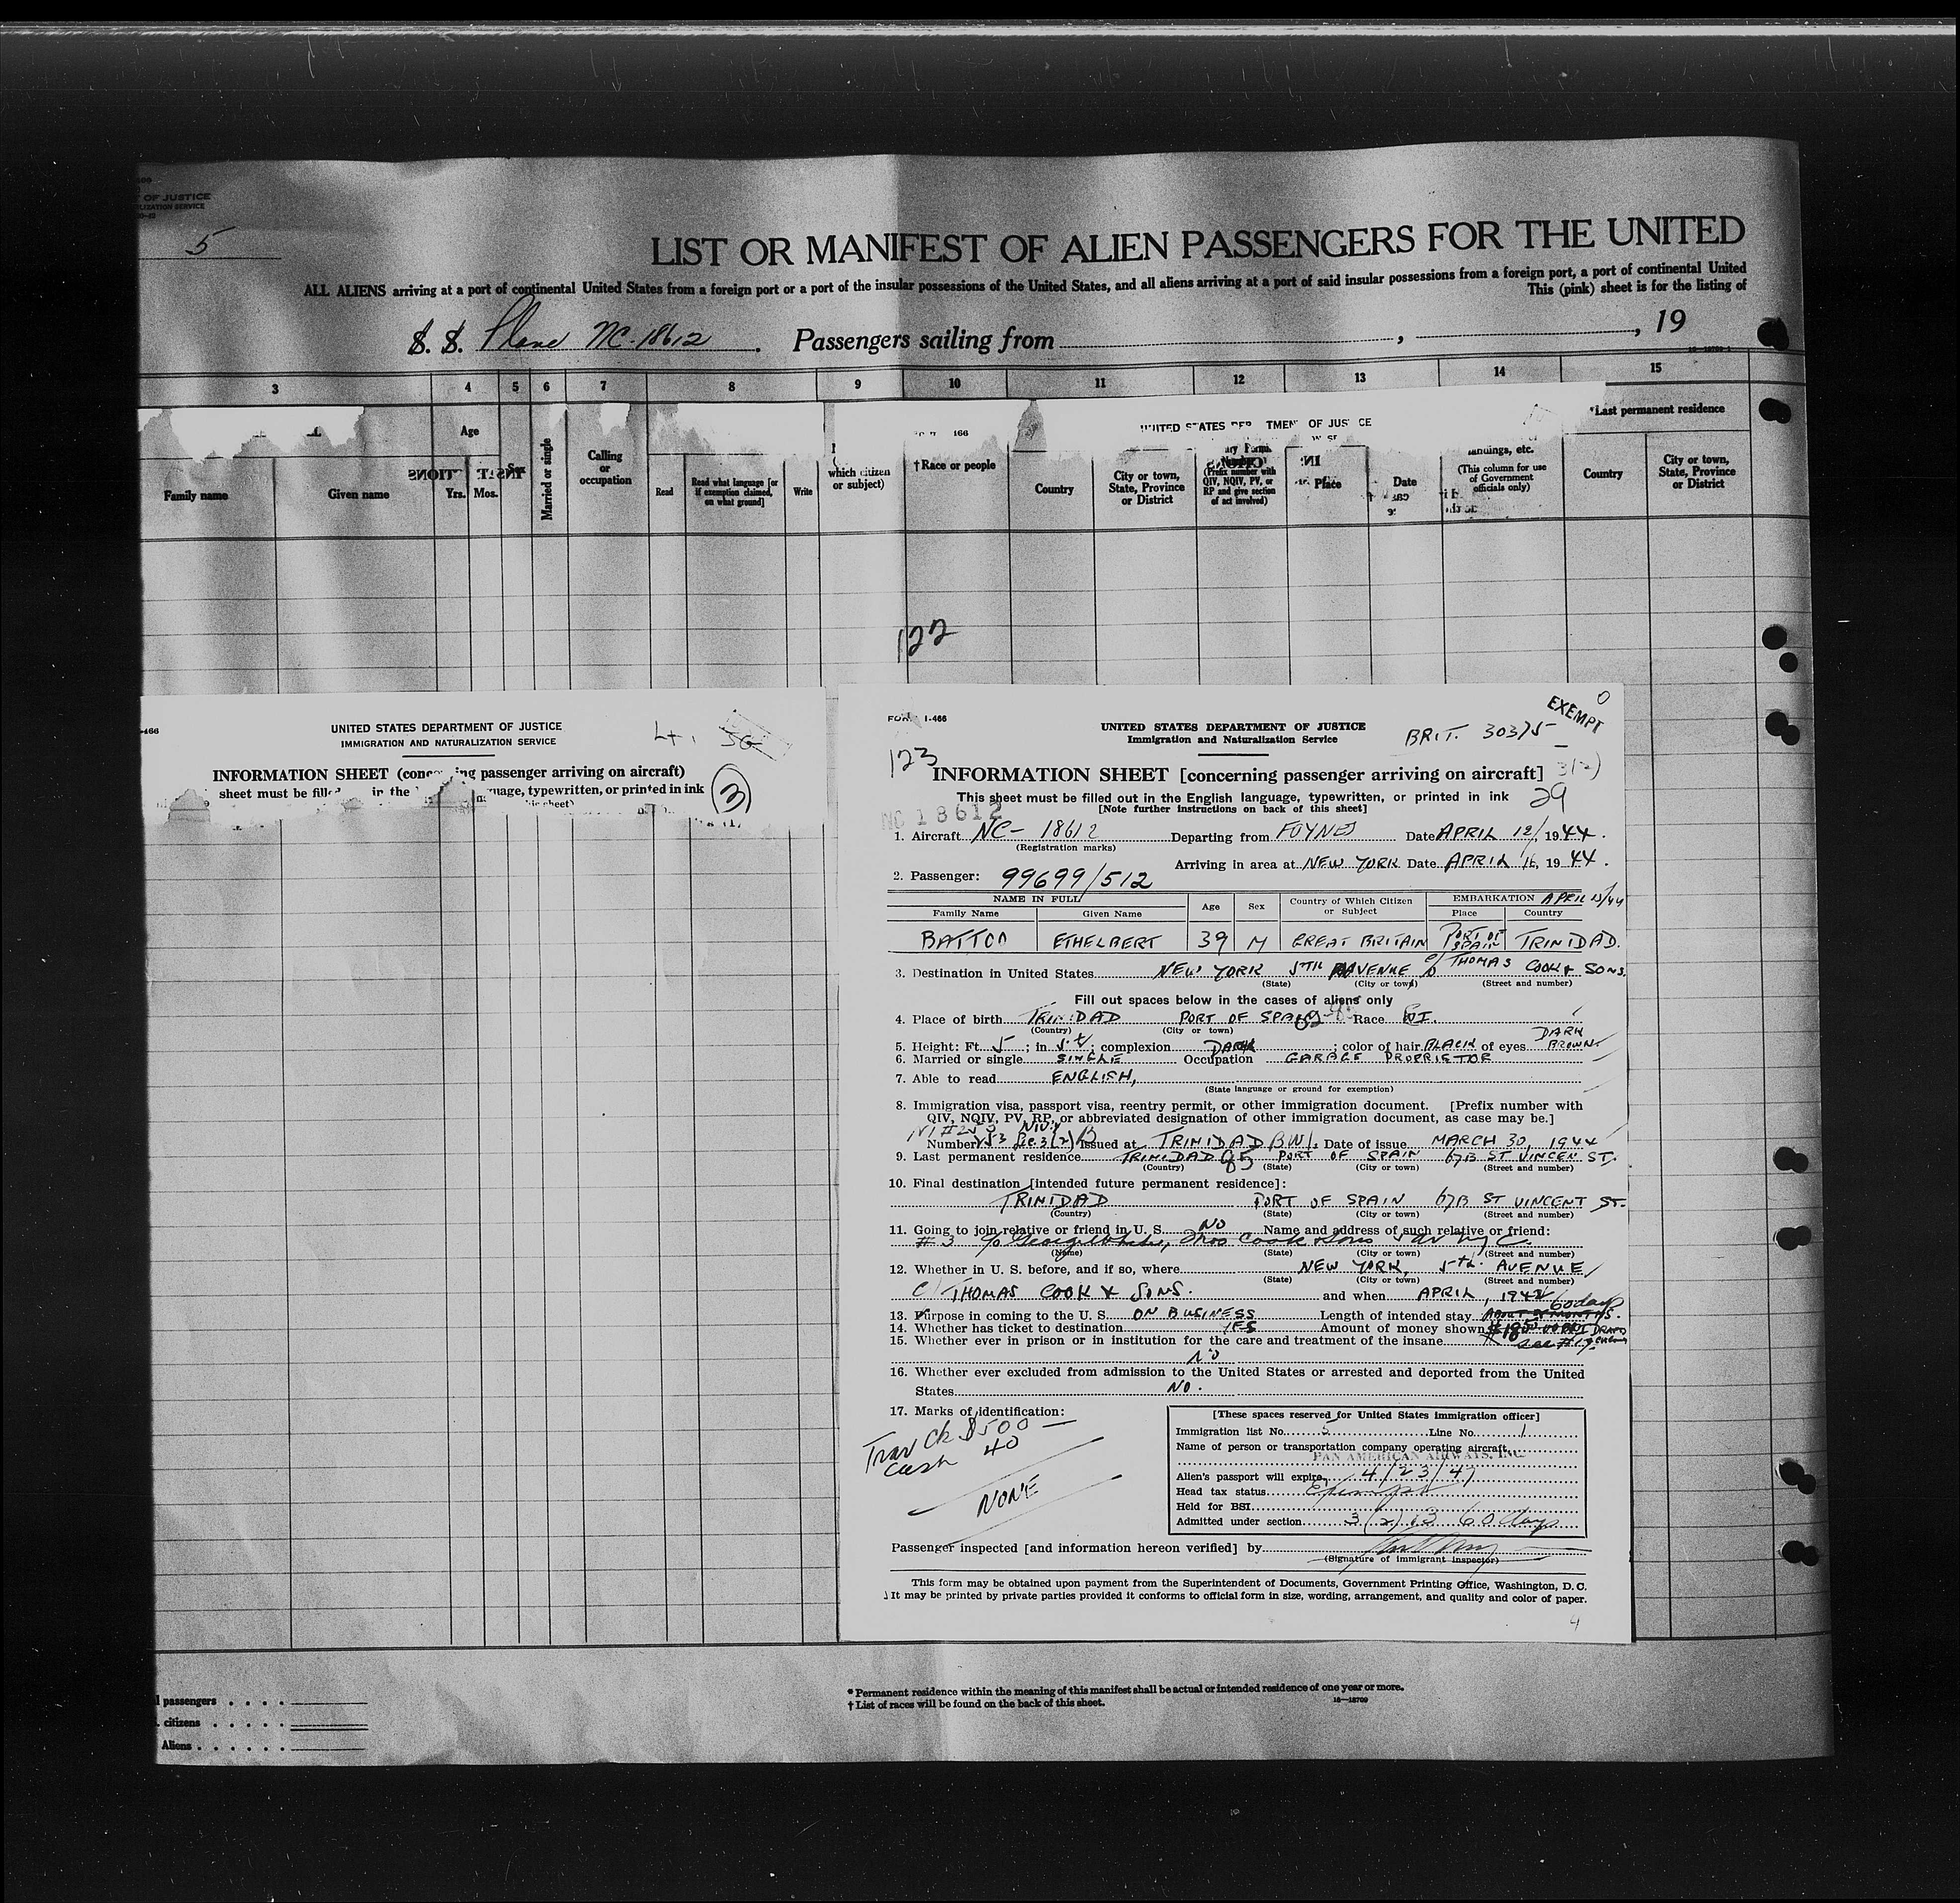 OF JUSTICE
5
LIST OR MANIFEST OF ALIEN PASSENGERS FOR THE UNITED
ALL ALIENS arriving at a port of continental United States from a foreign port or a port of the insular possessions of the United States, and all aliens arriving at a port of said insular possessions from a foreign port, a port of continental United
This (pink) sheet is for the listing of
S. S. Plane NC-18612. Passengers sailing from , , 19
3 4 5 6 7 8 9 10 11 12 13 14 15
Family name Given name Age Yrs. Mos. Married or single Calling or occupation Read Read what language [or if exemption claimed, on what ground] Write which citizen or subject) †Race or people Country City or town, State, Province or District (Prefix number with QIV, NQIV, PV, or RP and give section of act involved) Place Date (This column for use of Government officials only) *Last permanent residence Country City or town, State, Province or District
122
UNITED STATES DEPARTMENT OF JUSTICE
IMMIGRATION AND NATURALIZATION SERVICE
INFORMATION SHEET passenger arriving on aircraft)
sheet must be in the typewritten, or printed in ink
3
FORM I-466
UNITED STATES DEPARTMENT OF JUSTICE
Immigration and Naturalization Service
EXEMPT
BRIT. 30375
123
INFORMATION SHEET [concerning passenger arriving on aircraft] 3(2)
This sheet must be filled out in the English language, typewritten, or printed in ink 29
[Note further instructions on back of this sheet]
NC 18612
1. Aircraft NC- 18612 Departing from FOYNES Date APRIL 12, 1944.
(Registration marks)
Arriving in area at NEW YORK Date APRIL 16, 1944.
2. Passenger: 99699/512
NAME IN FULL Age Sex Country of Which Citizen or Subject EMBARKATION APRIL 13/44
Family Name Given Name Place Country
BATTOO ETHELBERT 39 M GREAT BRITAIN PORT OF SPAIN TRINIDAD.
3. Destination in United States NEW YORK 5TH AVENUE c/o THOMAS COOK & SONS.
(State) (City or town) (Street and number)
Fill out spaces below in the cases of aliens only
4. Place of birth TRINIDAD PORT OF SPAIN Race
(Country) (City or town)
5. Height: Ft. 5; in ; complexion DARK; color of hair BLACK of eyes DARK BROWN
6. Married or single SINGLE Occupation GARAGE PROPRIETOR
7. Able to read ENGLISH,
(State language or ground for exemption)
8. Immigration visa, passport visa, reentry permit, or other immigration document. [Prefix number with
QIV, NQIV, PV, RP, or abbreviated designation of other immigration document, as case may be.]
Number Sec 3(2) Issued at TRINIDAD B.W.I. Date of issue MARCH 30, 1944
9. Last permanent residence TRINIDAD 95 PORT OF SPAIN 67B ST VINCEN ST.
(Country) (State) (City or town) (Street and number)
10. Final destination [intended future permanent residence]:
TRINIDAD PORT OF SPAIN 67B ST VINCENT ST.
(Country) (State) (City or town) (Street and number)
11. Going to join relative or friend in U. S. NO Name and address of such relative or friend:
# 3 Thos Cook & Sons
(Name) (State) (City or town) (Street and number)
12. Whether in U. S. before, and if so, where NEW YORK, 5th. AVENUE
(State) (City or town) (Street and number)
C/ THOMAS COOK & SONS. and when APRIL, 1942
13. Purpose in coming to the U. S. ON BUSINESS Length of intended stay 60 days
14. Whether has ticket to destination YES Amount of money shown
15. Whether ever in prison or in institution for the care and treatment of the insane See #17
NO
16. Whether ever excluded from admission to the United States or arrested and deported from the United
States NO.
17. Marks of identification:
Trav Ck $500
Cash 40
NONE
[These spaces reserved for United States immigration officer]
Immigration list No. 5 Line No. 1
Name of person or transportation company operating aircraft
PAN AMERICAN AIRWAYS, INC
Alien's passport will expire 4/23/47
Head tax status Exempt
Held for BSI
Admitted under section 3(2) 13 60 days
Passenger inspected [and information hereon verified] by
(Signature of immigrant inspector)
This form may be obtained upon payment from the Superintendent of Documents, Government Printing Office, Washington, D. C.
It may be printed by private parties provided it conforms to official form in size, wording, arrangement, and quality and color of paper.
4
passengers
citizens
Aliens
* Permanent residence within the meaning of this manifest shall be actual or intended residence of one year or more.
† List of races will be found on the back of this sheet.
16—18709